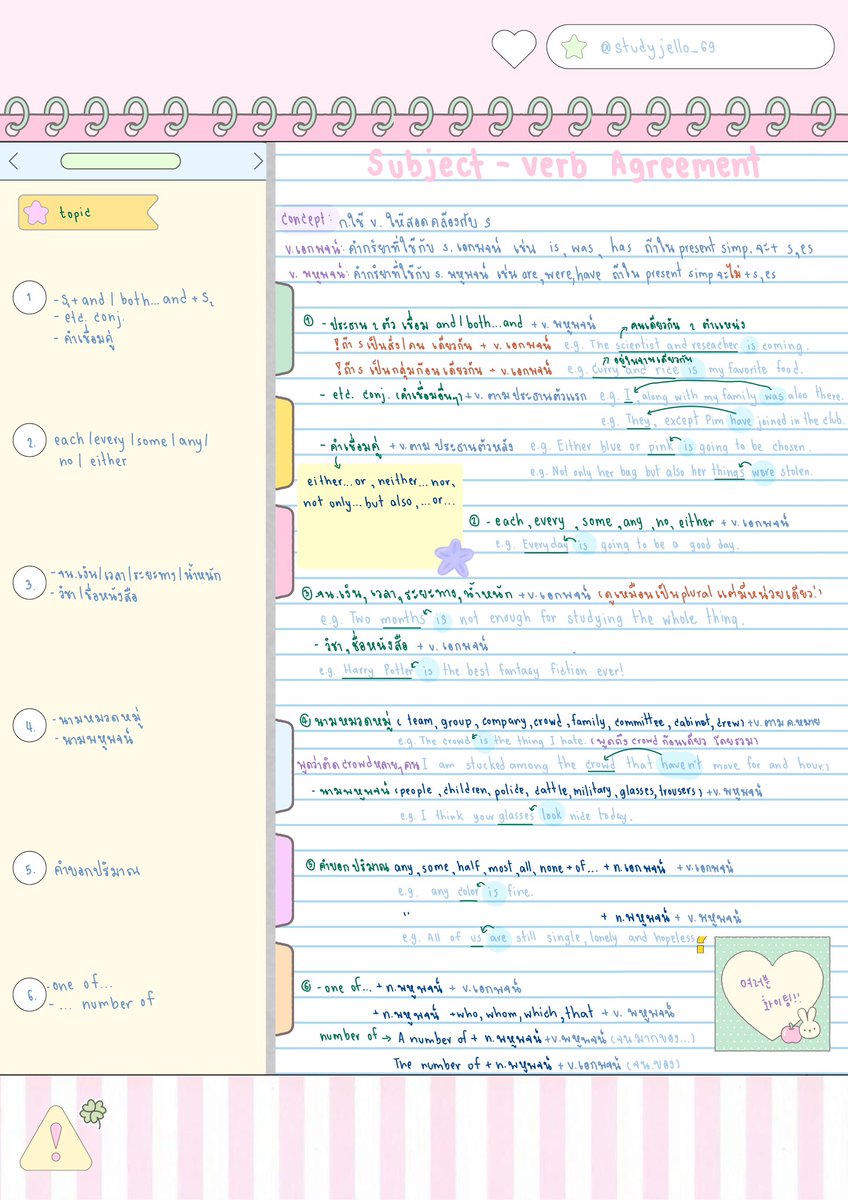 @studyjello_69
Subject - verb Agreement
topic
1
- S₁ + and / both... and + S₂
- etc. conj.
- คำเชื่อมคู่
2.
each / every / some / any /
no / either
3.
- จน.เงิน / เวลา / ระยะทาง / น้ำหนัก
- วิชา / ชื่อหนังสือ
4.
- นามหมวดหมู่
- นามพหูพจน์
5.
คำบอกปริมาณ
6.
- one of...
- ... number of
concept: ก.ใช้ v. ให้สอดคล้องกับ s
v.เอกพจน์: คำกริยาที่ใช้กับ s. เอกพจน์ เช่น is, was, has ถ้าใน present simp. จะ + s, es
v. พหูพจน์: คำกริยาที่ใช้กับ s. พหูพจน์ เช่น are, were, have ถ้าใน present simp จะไม่ + s, es
① - ประธาน 2 ตัว เชื่อม and / both... and + v. พหูพจน์
คนเดียวกัน 2 ตำแหน่ง
! ถ้า s เป็นสิ่ง / คน เดียวกัน + v. เอกพจน์ e.g. The scientist and reseacher is coming.
อยู่ในจานเดียวกัน
! ถ้า s เป็นกลุ่มก้อนเดียวกัน + v. เอกพจน์ e.g. Curry and rice is my favorite food.
- etc. conj. (คำเชื่อมอื่นๆ) + v. ตามประธานตัวแรก e.g. I, along with my family was also there.
e.g. They, except Pim have joined in the club.
- คำเชื่อมคู่ + v. ตาม ประธานตัวหลัง e.g. Either blue or pink is going to be chosen.
e.g. Not only her bag but also her things were stolen.
either... or, neither... nor,
not only... but also, ... or...
② - each, every, some, any, no, either + v. เอกพจน์
e.g. Everyday is going to be a good day.
③ จน.เงิน, เวลา, ระยะทาง, น้ำหนัก + v. เอกพจน์ (ดูเหมือนเป็น plural แต่มีหน่วยเดียว!)
e.g. Two months is not enough for studying the whole thing.
- วิชา, ชื่อหนังสือ + v. เอกพจน์
e.g. Harry Potter is the best fantasy fiction ever!
④ นามหมวดหมู่ ( team, group, company, crowd, family, committee, cabinet, crew) + v. ตาม ค.หมาย
e.g. The crowd is the thing I hate. (พูดถึง crowd ก้อนเดียว โดยรวม)
พูดว่าติด crowd หลายๆ คน I am stucked among the crowd that haven't move for and hour)
- นามพหูพจน์ (people, children, police, cattle, military, glasses, trousers) + v. พหูพจน์
e.g. I think your glasses look nice today.
⑤ คำบอกปริมาณ any, some, half, most, all, none + of... + n.เอกพจน์ + v. เอกพจน์
e.g. any color is fine.
" + n.พหูพจน์ + v. พหูพจน์
e.g. All of us are still single, lonely and hopeless
⑥ - one of... + n.พหูพจน์ + v. เอกพจน์
+ n.พหูพจน์ + who, whom, which, that + v. พหูพจน์
number of → A number of + n. พหูพจน์ + v. พหูพจน์ (จน.มากของ...)
The number of + n. พหูพจน์ + v. เอกพจน์ (จน.ของ)
여러분
화이팅!!